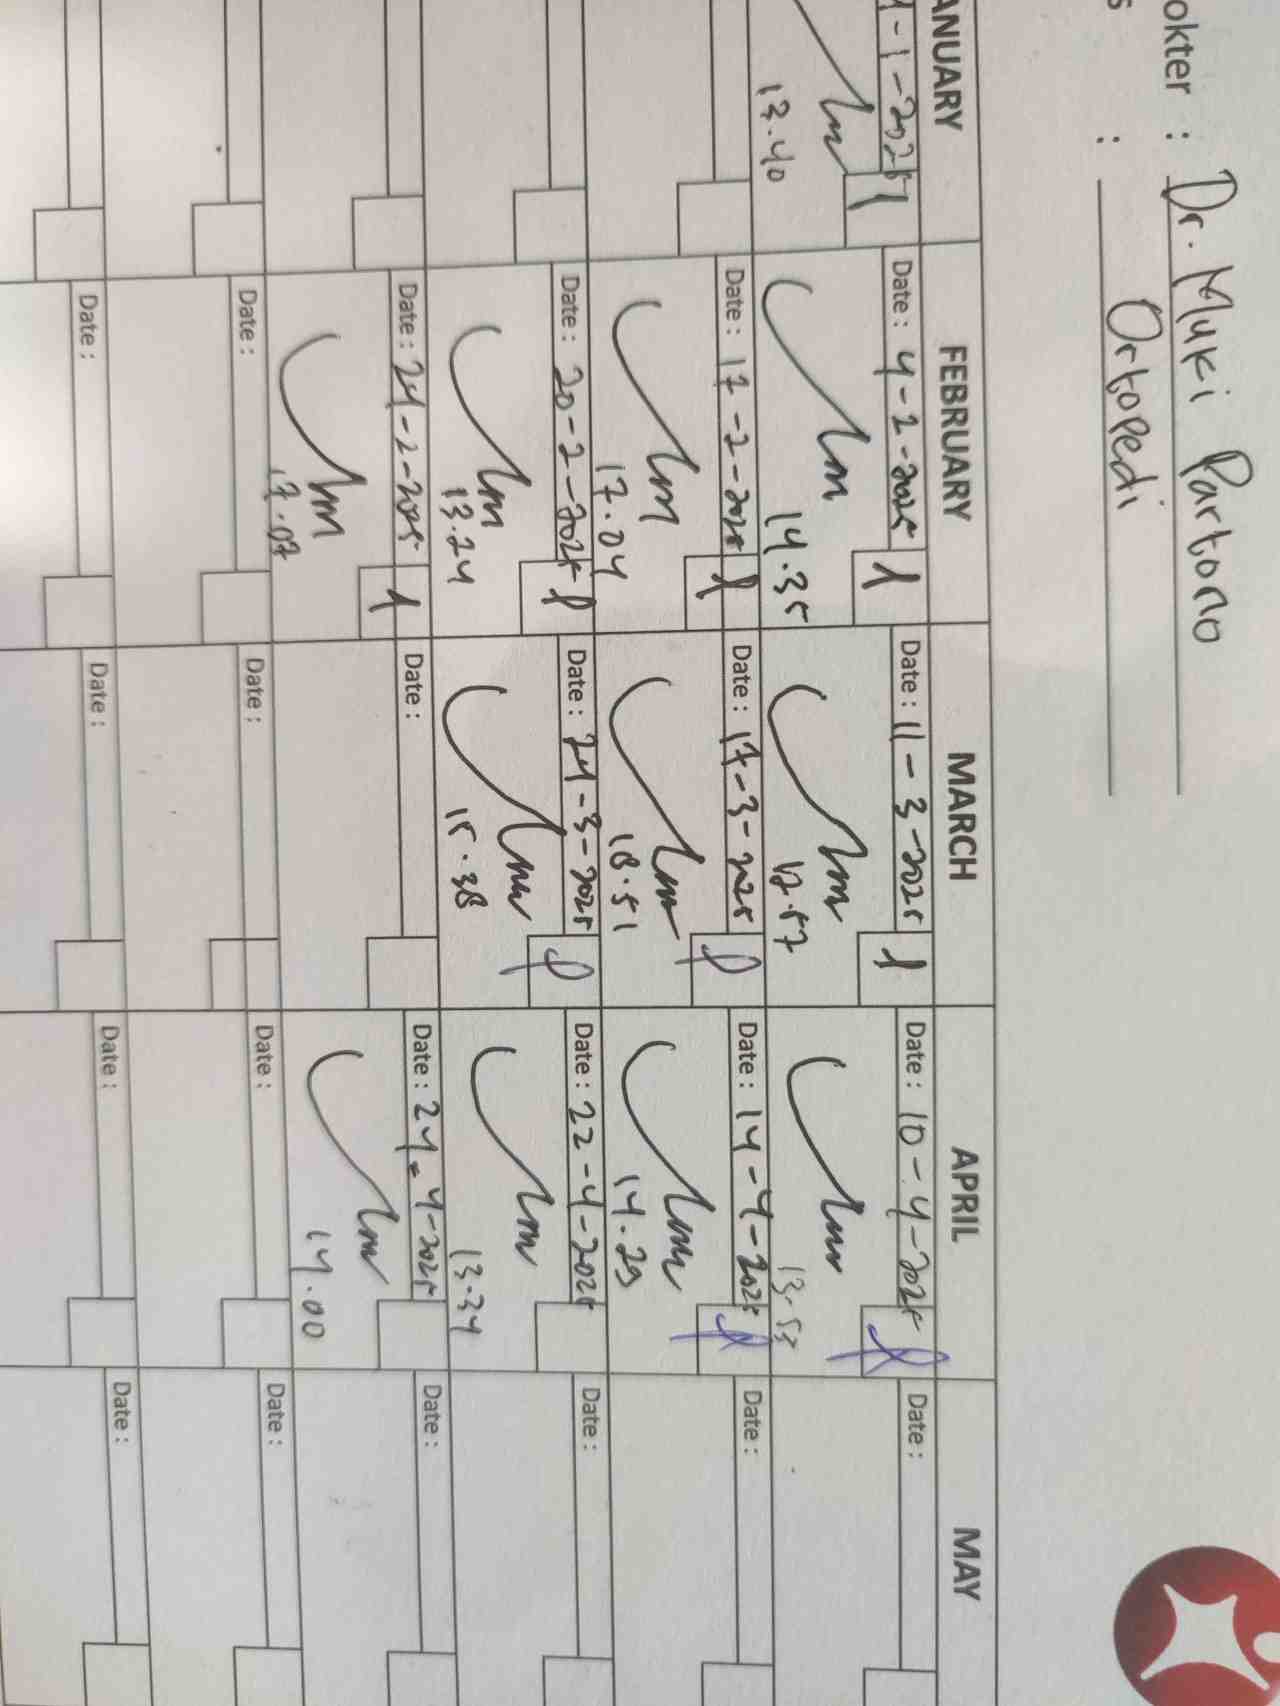 okter : Dr. Muki Partono
s : Ortopedi
ANUARY FEBRUARY MARCH APRIL MAY
-1-2025 Date : 4-2-2025 Date : 11-3-2025 Date : 10-4-2025 Date :
13.40 14.35 12.57 13.53
Date : 17-2-2025 Date : 17-3-2025 Date : 14-4-2025 Date :
17.04 18.51 14.29
Date : 20-2-2025 Date : 24-3-2025 Date : 22-4-2025 Date :
13.24 15.38 13.34
Date : 24-2-2025 Date : Date : 24-4-2025 Date :
17.07 14.00
Date : Date : Date : Date :
Date : Date : Date : Date :